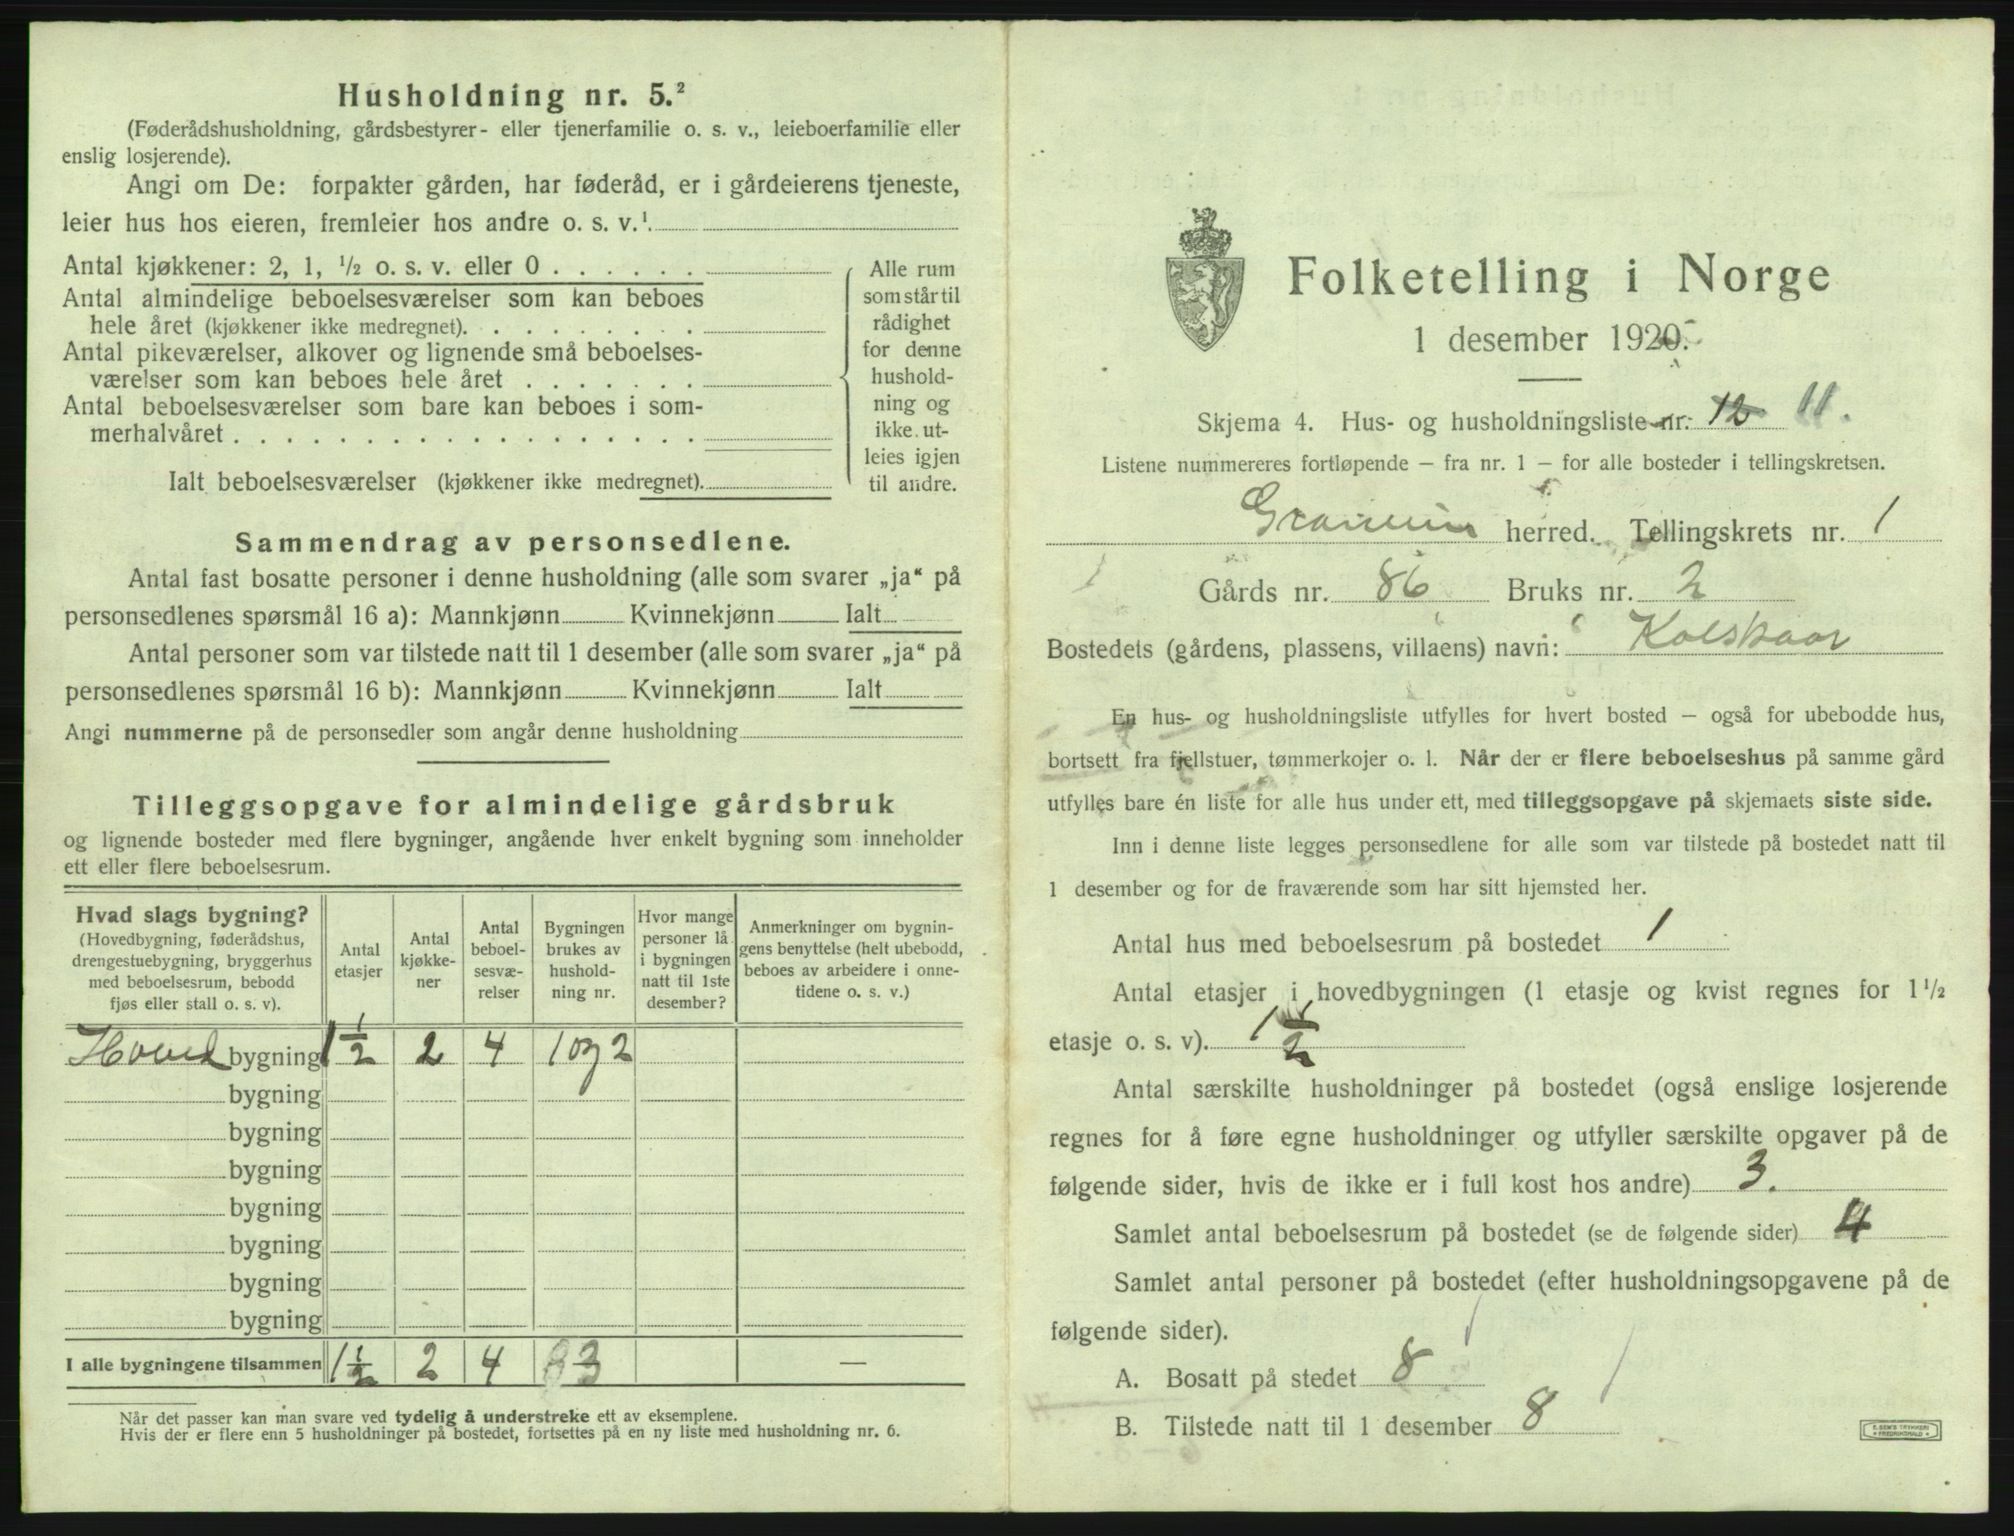 Husholdning nr. 5.²
(Føderådshusholdning, gårdsbestyrer- eller tjenerfamilie o. s. v., leieboerfamilie eller
enslig losjerende).
Angi om De: forpakter gården, har føderåd, er i gårdeierens tjeneste,
leier hus hos eieren, fremleier hos andre o. s. v.¹
Antal kjøkkener: 2, 1, ½ o. s. v. eller 0 . . . . . .
Antal almindelige beboelsesværelser som kan beboes
hele året (kjøkkener ikke medregnet). . . . . . . . .
Antal pikeværelser, alkover og lignende små beboelses-
værelser som kan beboes hele året . . . . . . .
Antal beboelsesværelser som bare kan beboes i som-
merhalvåret . . . . . . . . . . . . . . . . . .
Ialt beboelsesværelser (kjøkkener ikke medregnet).
Alle rum
som står til
rådighet
for denne
hushold-
ning og
ikke ut-
leies igjen
til andre.
Sammendrag av personsedlene.
Antal fast bosatte personer i denne husholdning (alle som svarer „ja“ på
personsedlenes spørsmål 16 a): Mannkjønn Kvinnekjønn Ialt
Antal personer som var tilstede natt til 1 desember (alle som svarer „ja“ på
personsedlenes spørsmål 16 b): Mannkjønn Kvinnekjønn Ialt
Angi nummerne på de personsedler som angår denne husholdning
Tilleggsopgave for almindelige gårdsbruk
og lignende bosteder med flere bygninger, angående hver enkelt bygning som inneholder
ett eller flere beboelsesrum.
Hvad slags bygning?
(Hovedbygning, føderådshus,
drengestuebygning, bryggerhus
med beboelsesrum, bebodd
fjøs eller stall o. s. v).
Antal
etasjer
Antal
kjøkke-
ner
Antal
beboel-
sesvæ-
relser
Bygningen
brukes av
hushold-
ning nr.
Hvor mange
personer lå
i bygningen
natt til 1ste
desember?
Anmerkninger om bygnin-
gens benyttelse (helt ubebodd,
beboes av arbeidere i onne-
tidene o. s. v.)
Hoved bygning 1½ 2 4 1 og 2
bygning
bygning
bygning
bygning
bygning
bygning
bygning
I alle bygningene tilsammen 1½ 2 4 3 —
Når det passer kan man svare ved tydelig å understreke ett av eksemplene.
Hvis der er flere enn 5 husholdninger på bostedet, fortsettes på en ny liste med husholdning nr. 6.
Folketelling i Norge
1 desember 1920.
Skjema 4. Hus- og husholdningsliste nr. 12 11.
Listene nummereres fortløpende – fra nr. 1 – for alle bosteder i tellingskretsen.
herred. Tellingskrets nr. 1
Gårds nr. 86 Bruks nr. 2
Bostedets (gårdens, plassens, villaens) navn: Kolskaar
En hus- og husholdningsliste utfylles for hvert bosted – også for ubebodde hus,
bortsett fra fjellstuer, tømmerkojer o. l. Når der er flere beboelseshus på samme gård
utfylles bare én liste for alle hus under ett, med tilleggsopgave på skjemaets siste side.
Inn i denne liste legges personsedlene for alle som var tilstede på bostedet natt til
1 desember og for de fraværende som har sitt hjemsted her.
Antal hus med beboelsesrum på bostedet 1
Antal etasjer i hovedbygningen (1 etasje og kvist regnes for 1½
etasje o. s. v). 1½
Antal særskilte husholdninger på bostedet (også enslige losjerende
regnes for å føre egne husholdninger og utfyller særskilte opgaver på de
følgende sider, hvis de ikke er i full kost hos andre) 3.
Samlet antal beboelsesrum på bostedet (se de følgende sider) 4
Samlet antal personer på bostedet (efter husholdningsopgavene på de
følgende sider).
A. Bosatt på stedet 8
B. Tilstede natt til 1 desember 8